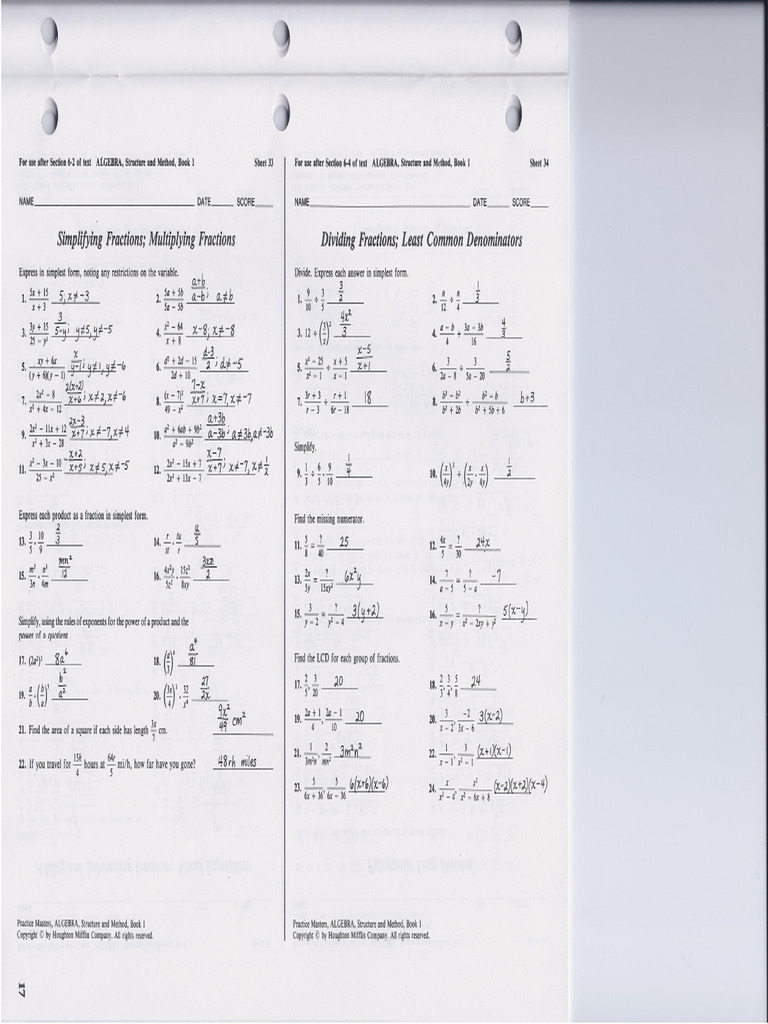 For use after Section 6-2 of text ALGEBRA, Structure and Method, Book 1 Sheet 33
NAME DATE SCORE
Simplifying Fractions; Multiplying Fractions
Express in simplest form, noting any restrictions on the variable.
1. (5x + 15)/(x + 3) 5; x≠-3
2. (5a + 5b)/(5a − 5b) (a+b)/(a-b); a≠b
3. (3y + 15)/(25 − y²) 3/(5-y); y≠5, y≠-5
4. (x² − 64)/(x + 8) x-8; x≠-8
5. (xy + 6x)/((y + 6)(y − 1)) x/(y-1); y≠1, y≠-6
6. (d² + 2d − 15)/(2d + 10) (d-3)/2; d≠-5
7. (2x² − 8)/(x² + 4x − 12) 2(x+2)/(x+6); x≠2, x≠-6
8. (x − 7)²/(49 − x²) (7-x)/(x+7); x=7, x≠-7
9. (2x² − 11x + 12)/(x² + 3x − 28) (2x-3)/(x+7); x≠-7, x≠4
10. (a² + 6ab + 9b²)/(a² − 9b²) (a+3b)/(a-3b); a≠3b, a≠-3b
11. (x² − 3x − 10)/(25 − x²) -(x+2)/(x+5); x≠5, x≠-5
12. (2x² − 15x + 7)/(2x² + 13x − 7) (x-7)/(x+7); x≠-7, x≠1/2
Express each product as a fraction in simplest form.
13. 3/5 · 10/9 2/3
14. r/st · tu/r u/s
15. m²/3n · n³/4m mn²/12
16. 4z²y/5c² · 15c²/8xy
17. (2a²)³ 8a⁶
18. (a/3)⁴ a⁴/81
Simplify, using the rules of exponents for the power of a product and the
power of a quotient
19. a/b · (b/a)³ b²/a²
20. (3x/4)³ · 32/x⁴ 27/2x
21. Find the area of a square if each side has length 3x/7 cm. 9x²/49 cm²
22. If you travel for 15h/4 hours at 64r/5 mi/h, how far have you gone? 48rh miles
Practice Masters, ALGEBRA, Structure and Method, Book 1
Copyright © by Houghton Mifflin Company. All rights reserved.
17
For use after Section 6-4 of text ALGEBRA, Structure and Method, Book 1 Sheet 34
NAME DATE SCORE
Dividing Fractions; Least Common Denominators
Divide. Express each answer in simplest form.
1. 9/10 ÷ 3/5 3/2
2. n/12 ÷ n/4 1/3
3. 12 ÷ (3/x)² 4x²/3
4. (a − b)/4 ÷ (3a − 3b)/16 4/3
5. (x² − 25)/(x² − 1) ÷ (x + 5)/(x − 1) (x-5)/(x+1)
6. 3/(2a − 8) ÷ 3/(5a − 20) 5/2
7. (3r + 3)/(r − 3) ÷ (r + 1)/(6r − 18) 18
8. (b² − b²)/(b² + 2b) ÷ (b² − b)/(b² + 5b + 6) b+3
Simplify.
9. 1/3 ÷ 6/5 · 9/10 1/4
10. (x/4y)² ÷ (x/2y · x/4y) 1/2
Find the missing numerator.
11. 5/8 = ?/40 25
12. 4x/5 = ?/30 24x
13. 2x/5y = ?/15xy² 6x²y
14. 7/(a − 5) = ?/(5 − a) -7
15. 3/(y − 2) = ?/(y² − 4) 3(y+2)
16. 5/(x − y) = ?/(x² − 2xy + y²) 5(x-y)
Find the LCD for each group of fractions.
17. 2/5, 3/20 20
18. 2/3, 3/4, 5/8 24
19. (2x + 1)/4, (2x − 1)/10 20
20. 3/(x − 2), −2/(3x − 6) 3(x-2)
21. 1/3m²n, 2/mn² 3m²n²
22. 1/(x − 1), 3/(x² − 1) (x+1)(x-1)
23. 5/(6x + 36), 5/(6x − 36) 6(x+6)(x-6)
24. x/(x² − 4), x²/(x² − 6x + 8) (x-2)(x+2)(x-4)
Practice Masters, ALGEBRA, Structure and Method, Book 1
Copyright © by Houghton Mifflin Company. All rights reserved.